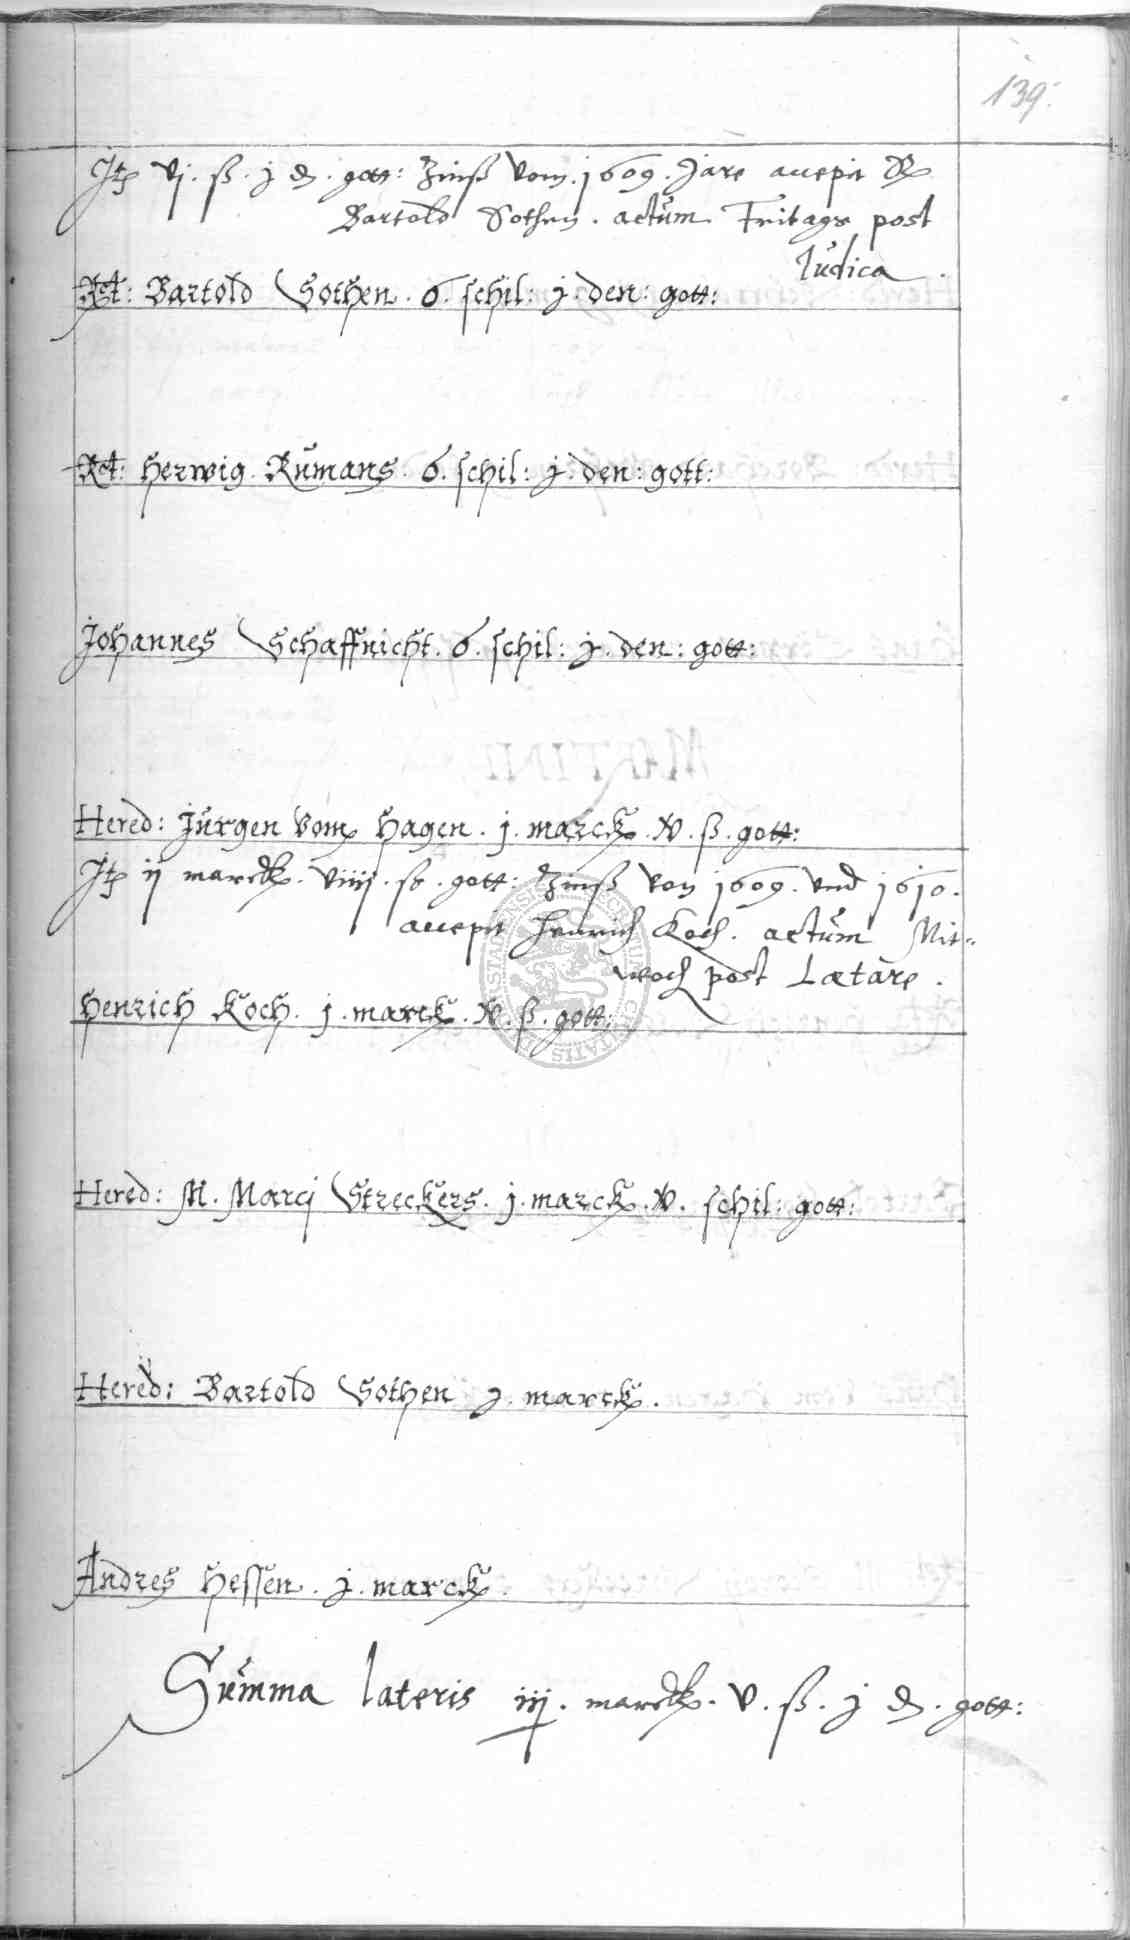 139.
It[em] vj. ß. j d. gott: Zinß vom. 1609. Jare accepit R
Bartold Sothen. actum Fritags post
Iudica.
Rct: Bartold Sothen. 6. schil: j. den: gott:
Rct: Herwig. Rumans. 6. schil: j. den: gott:
Johannes Schaffnicht. 6. schil: j. den: gott:
Hered: Jurgen Vom Hagen. j. marck. v. ß. gott:
It[em] ij marck. viiij. ß. gott: Zinß von 1609. vnd 1610.
accepit Henrich Koch. actum Mit-
woch post Lætare.
Henrich Koch. j. marck. v. ß. gott:
Hered: M. Marcj Streckers. j. marck. v. schil: gott:
Hered: Bartold Sothen j. marck.
Andres Hessen. j. marck.
Summa lateris iij. marck. v. ß. j d. gott: